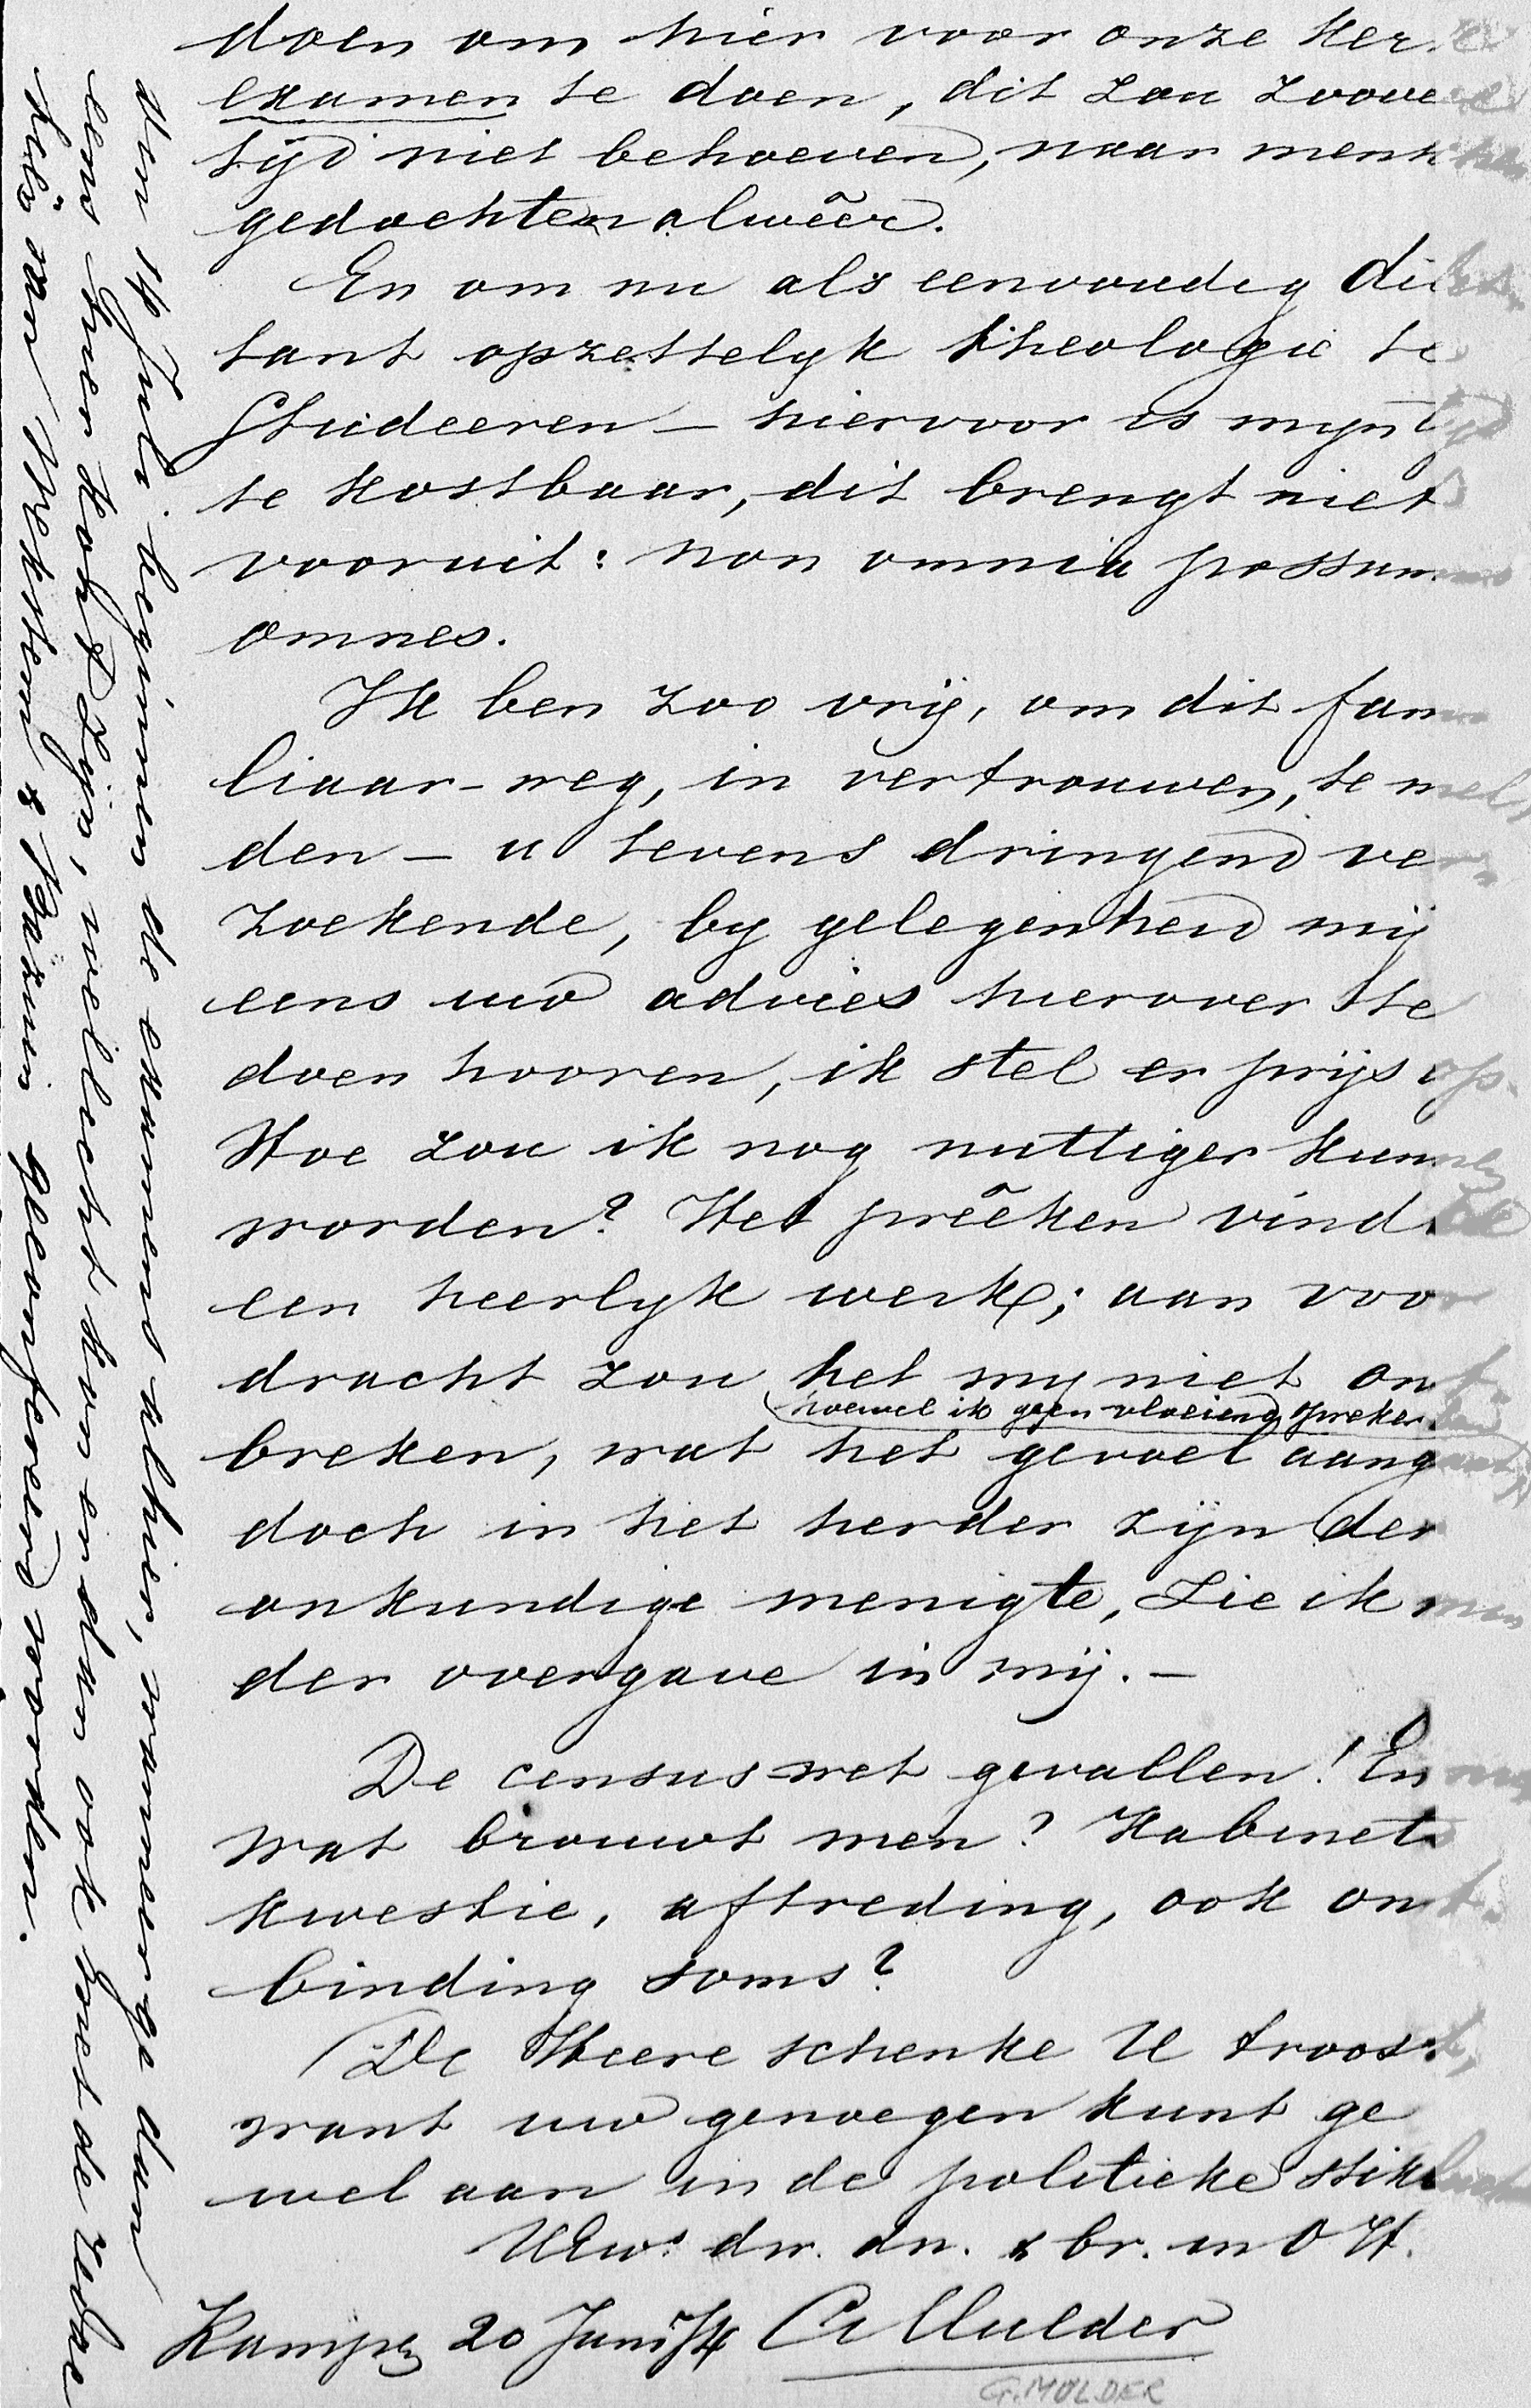 doen om hier voor onze Kerk
examen te doen, dit zou zoovee
tijd niet behoeven, naar mensch
gedachten alwêêr.
En om nu als eenvoudig dilet-
tant opzettelyk theologie te
studeeren — hiervoor is myn tyd
te kostbaar, dit brengt niet
vooruit: non omnia possumus
omnes.
Ik ben zoo vrij, om dit fami
liaar-weg, in vertrouwen, te mel-
den — u tevens dringend ver-
zoekende, by gelegenheid mij
eens uw advies hierover te
doen hooren, ik stel er prijs op.
Hoe zou ik nog nuttiger kunnen
worden? Het prêêken vind ik
een heerlyk werk; aan voor
dracht zou het my niet ont-
(hoewel ik geen vloeiend spreker ben
breken, wat het gevoel aangaat)
doch in het herder zijn der
onkundige menigte, zie ik min
der overgave in mij. —
De census-wet gevallen! En nu
wat brouwt men? Kabinets
kwestie, aftreding, ook ont-
binding soms?
De Heere schenke U troost,
want uw genoegen kunt ge
wel aan in de politieke stiklucht
UEw. dw. dn. & br. in O H.
Kampen 20 Juni/74 G Mulder
G. MULDER
Den 14 Juli beginnen de examens alhier, wanneer ge dan
eens hier kondt zijn, wellicht kon er dan ook met de zake
lui van Wekstem & Bazuin geconfereerd worden.